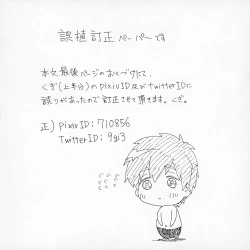 誤植訂正ペーパーです
本文最後ページのおくづけにて、
くぎ(上半分)のpixivID及びtwitterIDに
誤りがあったので訂正させて頂きます。くぎ。
正) pixivID: 710856
TwitterID: 9gi3